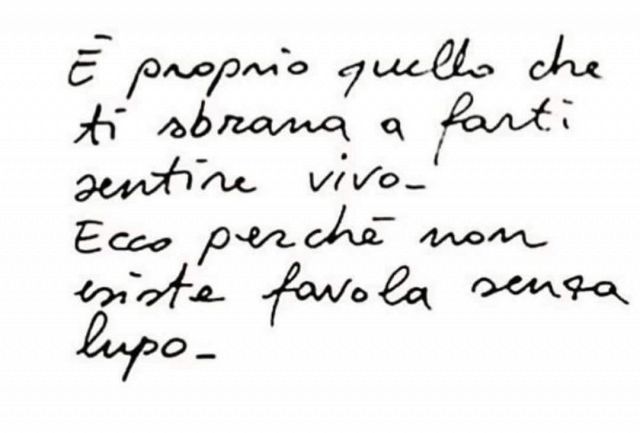 È proprio quello che
ti sbrana a farti
sentire vivo_
Ecco perchè non
esiste favola senza
lupo_